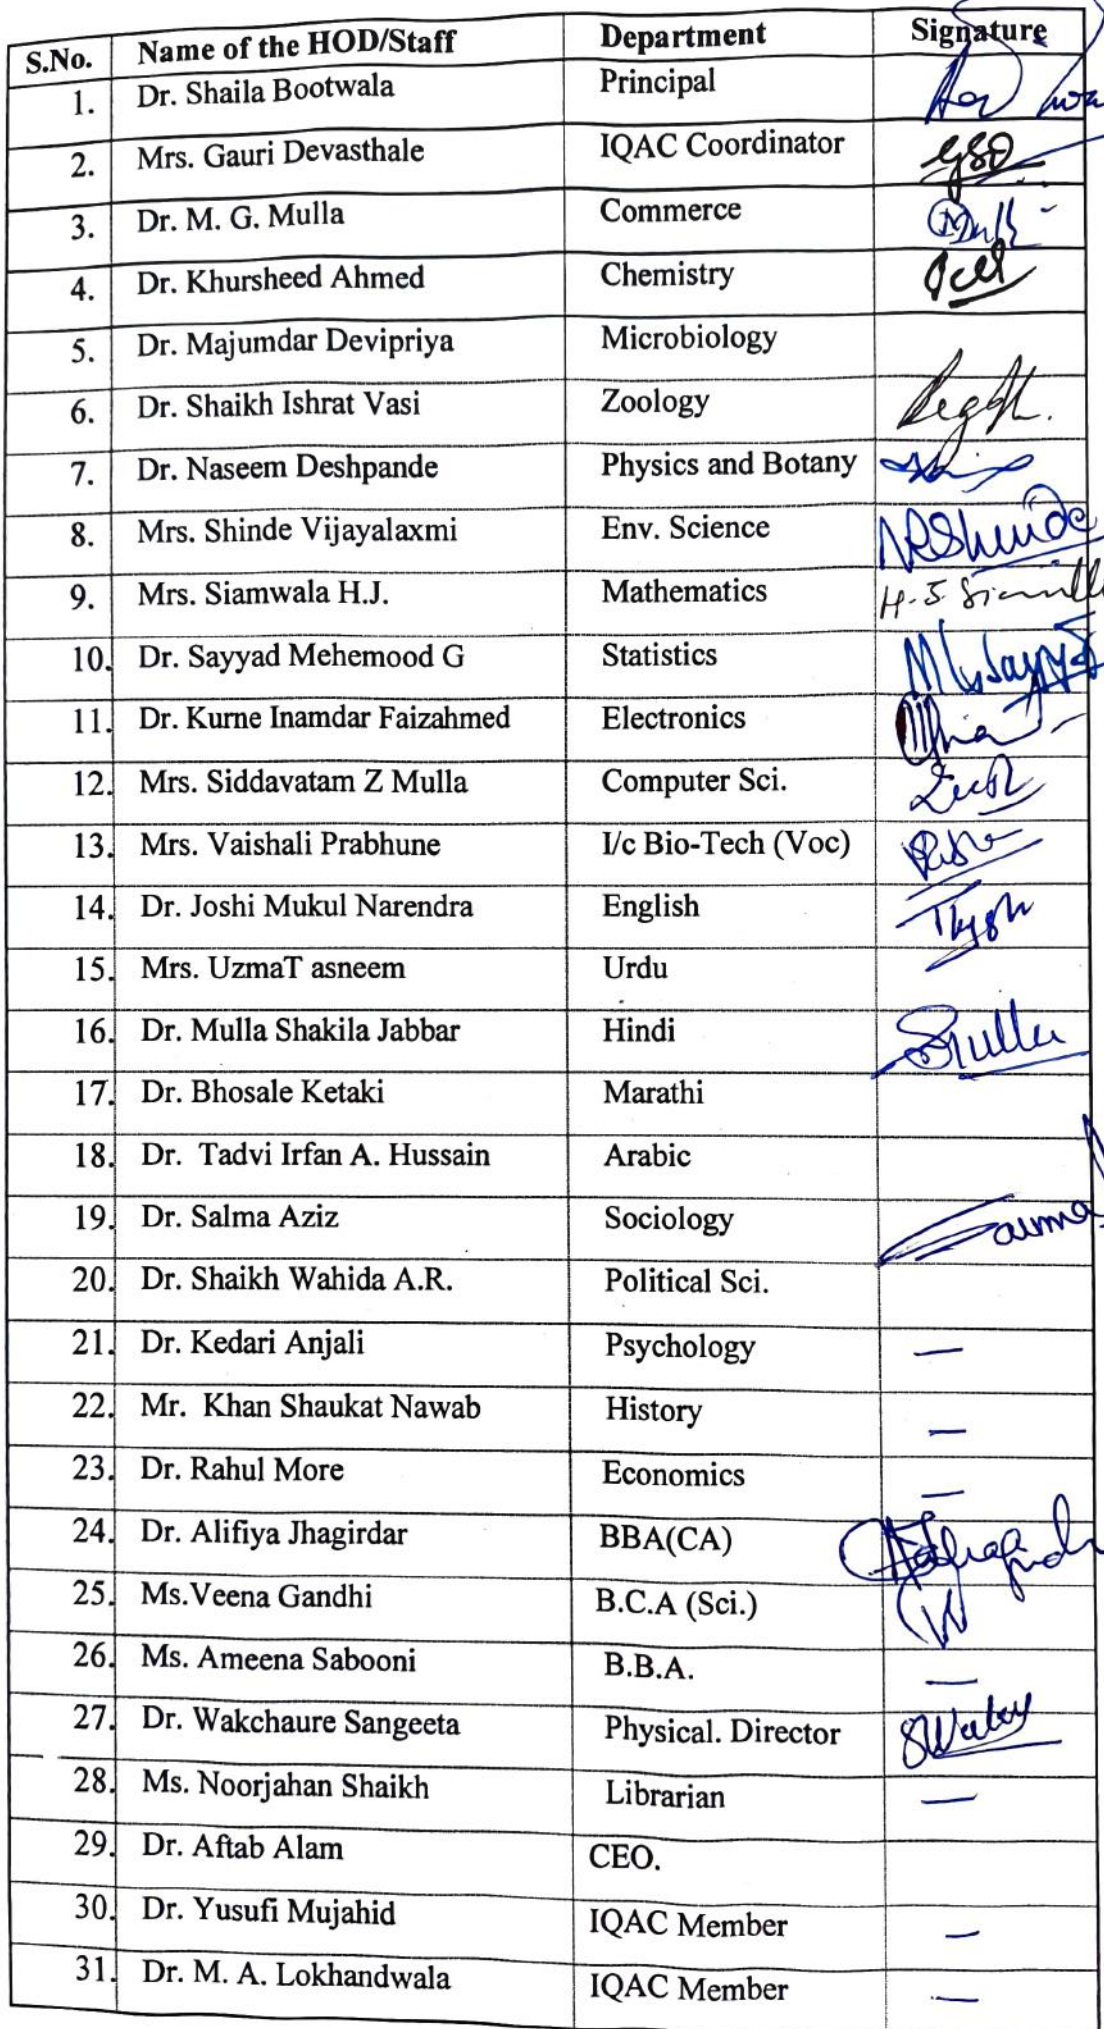 S.No. Name of the HOD/Staff Department Signature
1. Dr. Shaila Bootwala Principal
2. Mrs. Gauri Devasthale IQAC Coordinator
3. Dr. M. G. Mulla Commerce
4. Dr. Khursheed Ahmed Chemistry
5. Dr. Majumdar Devipriya Microbiology
6. Dr. Shaikh Ishrat Vasi Zoology
7. Dr. Naseem Deshpande Physics and Botany
8. Mrs. Shinde Vijayalaxmi Env. Science
9. Mrs. Siamwala H.J. Mathematics
10. Dr. Sayyad Mehemood G Statistics
11. Dr. Kurne Inamdar Faizahmed Electronics
12. Mrs. Siddavatam Z Mulla Computer Sci.
13. Mrs. Vaishali Prabhune I/c Bio-Tech (Voc)
14. Dr. Joshi Mukul Narendra English
15. Mrs. UzmaT asneem Urdu
16. Dr. Mulla Shakila Jabbar Hindi
17. Dr. Bhosale Ketaki Marathi
18. Dr. Tadvi Irfan A. Hussain Arabic
19. Dr. Salma Aziz Sociology
20. Dr. Shaikh Wahida A.R. Political Sci.
21. Dr. Kedari Anjali Psychology —
22. Mr. Khan Shaukat Nawab History —
23. Dr. Rahul More Economics —
24. Dr. Alifiya Jhagirdar BBA(CA)
25. Ms.Veena Gandhi B.C.A (Sci.)
26. Ms. Ameena Sabooni B.B.A. —
27. Dr. Wakchaure Sangeeta Physical. Director
28. Ms. Noorjahan Shaikh Librarian —
29. Dr. Aftab Alam CEO.
30. Dr. Yusufi Mujahid IQAC Member —
31. Dr. M. A. Lokhandwala IQAC Member —